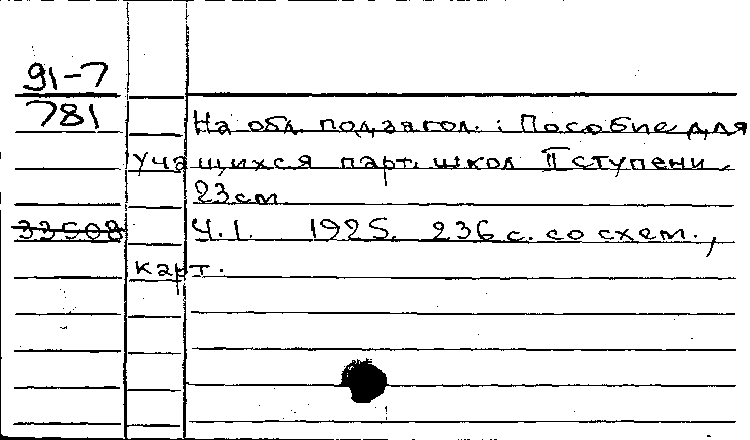 91-7
781
На обл. подзагол.: Пособие для
учащихся парт. школ II ступени.
23 см.
33508
Ч.1. 1925. 236 с. со схем.,
карт.